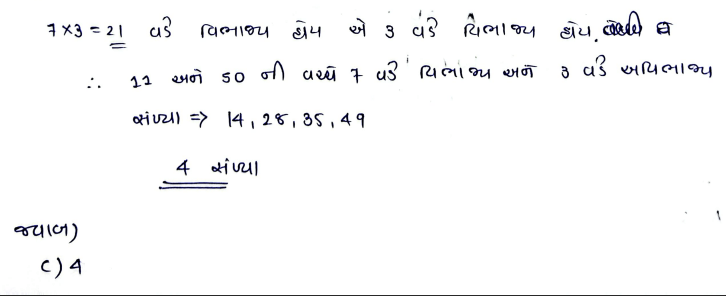 7 × 3 = 21 વડે વિભાજ્ય હોય એ 3 વડે વિભાજ્ય હોય.
∴ 11 અને 50 ની વચ્ચે 7 વડે વિભાજ્ય અને 3 વડે અવિભાજ્ય
સંખ્યા => 14, 28, 35, 49
4 સંખ્યા
જવાબ)
C) 4